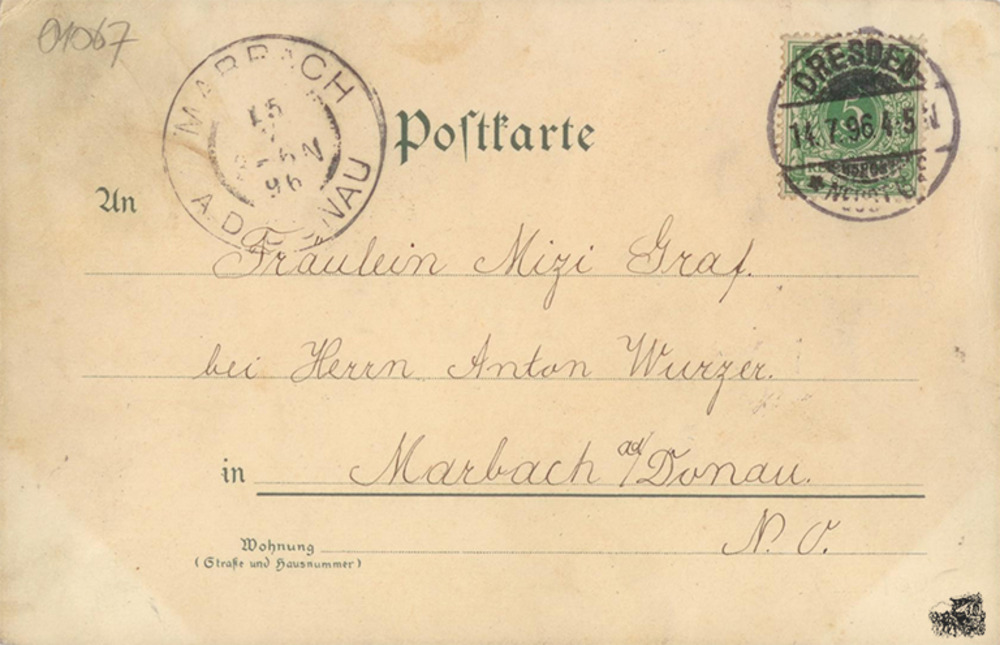 01067
MARBACH
15
7
96
A. DONAU
Postkarte
DRESDEN
5
14.7.96 4-5 N
REICHSPOST
An
Fräulein Mizi Graf.
bei Herrn Anton Wurzer.
in Marbach a/d Donau.
N. O.
Wohnung
(Straße und Hausnummer)